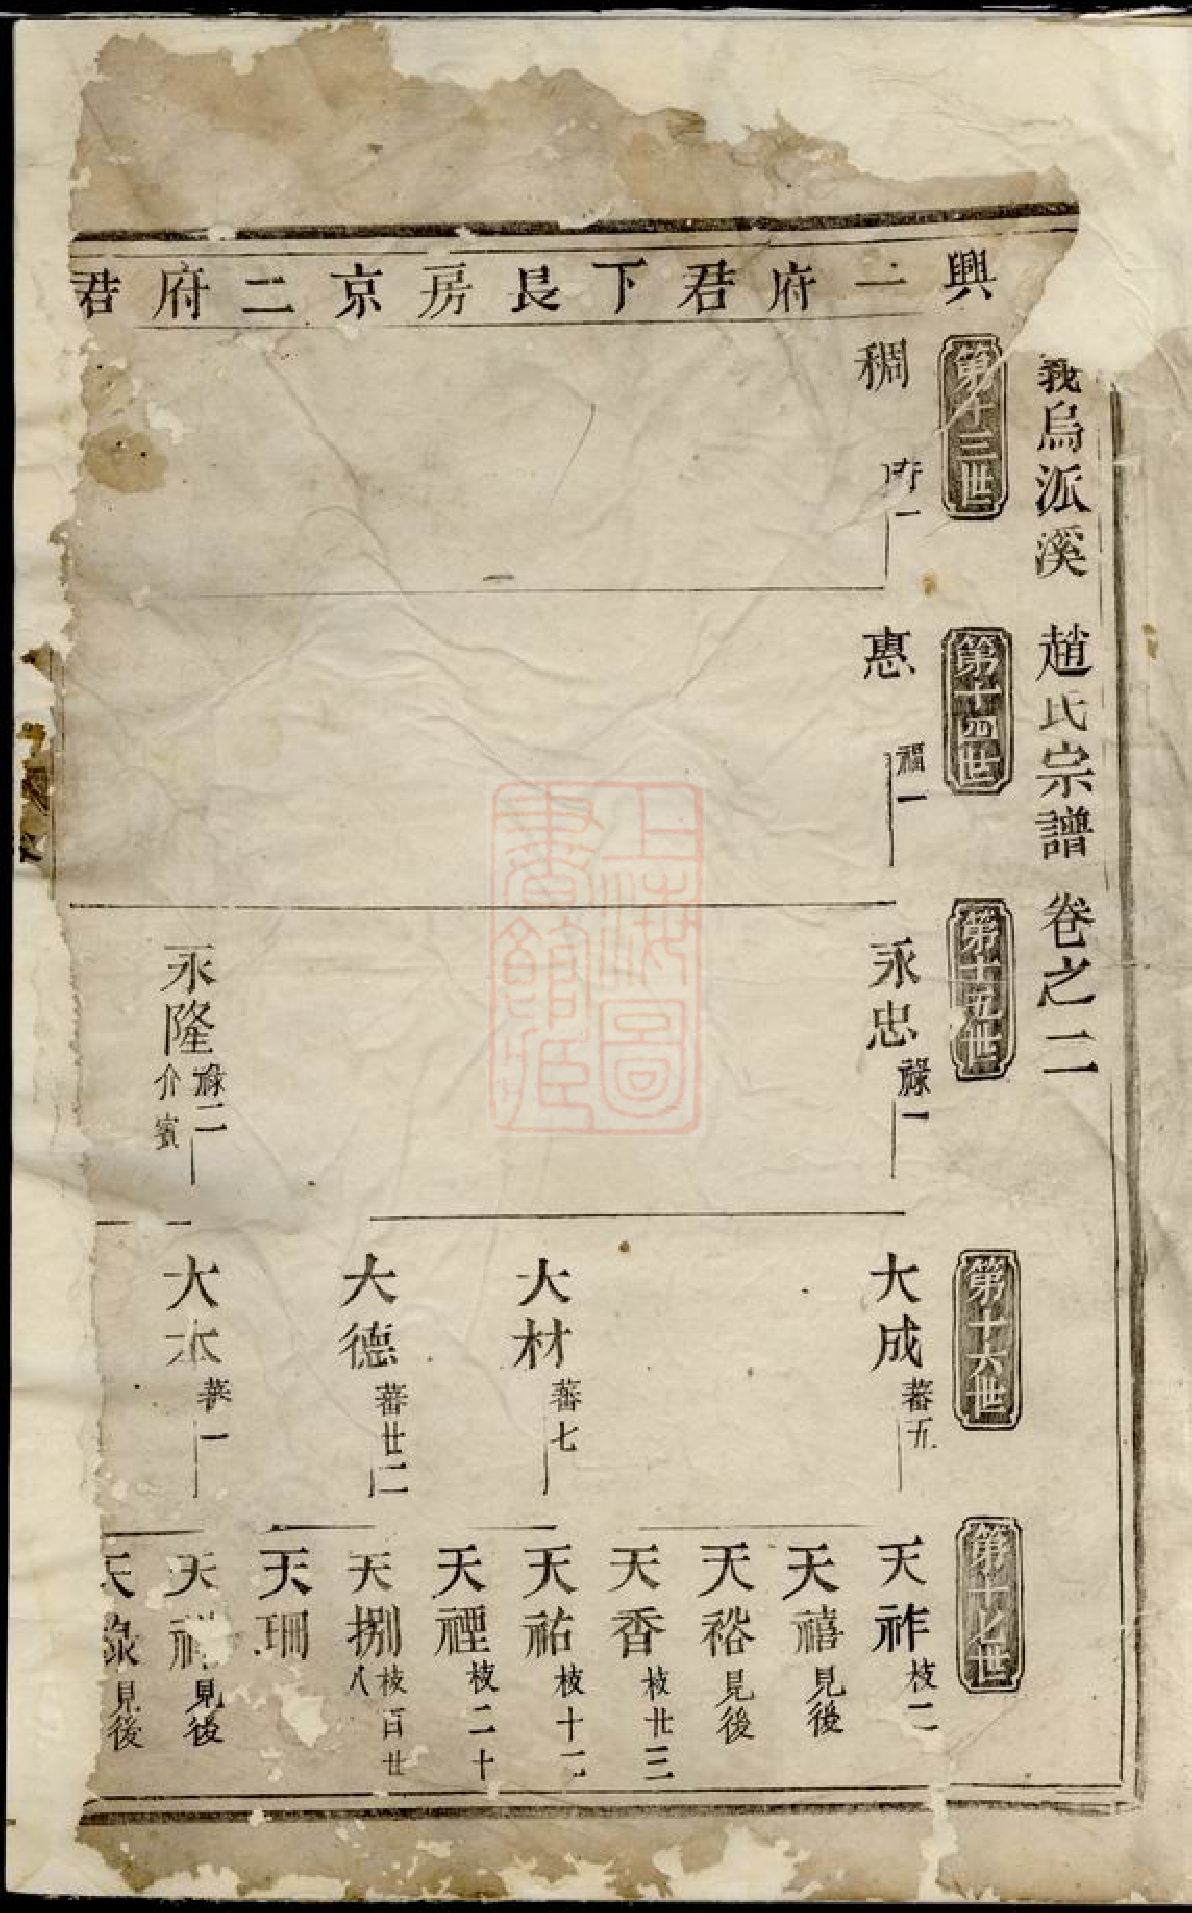 義烏派溪 趙氏宗譜 卷之二
興二府君下良房京二府君
第十三世
稠 府一
第十四世
惠 福一
第十五世
永忠 祿一
永隆 祿二 介賓
第十六世
大成 蕃五
大材 蕃七
大德 蕃廿二
大本 華一
第十七世
天祚 枝二
天禧 見後
天裕 見後
天香 枝廿三
天祐 枝十二
天禋 枝二十
天捌 枝百廿八
天珊
天 見後
天祿 見後
上海圖書館藏